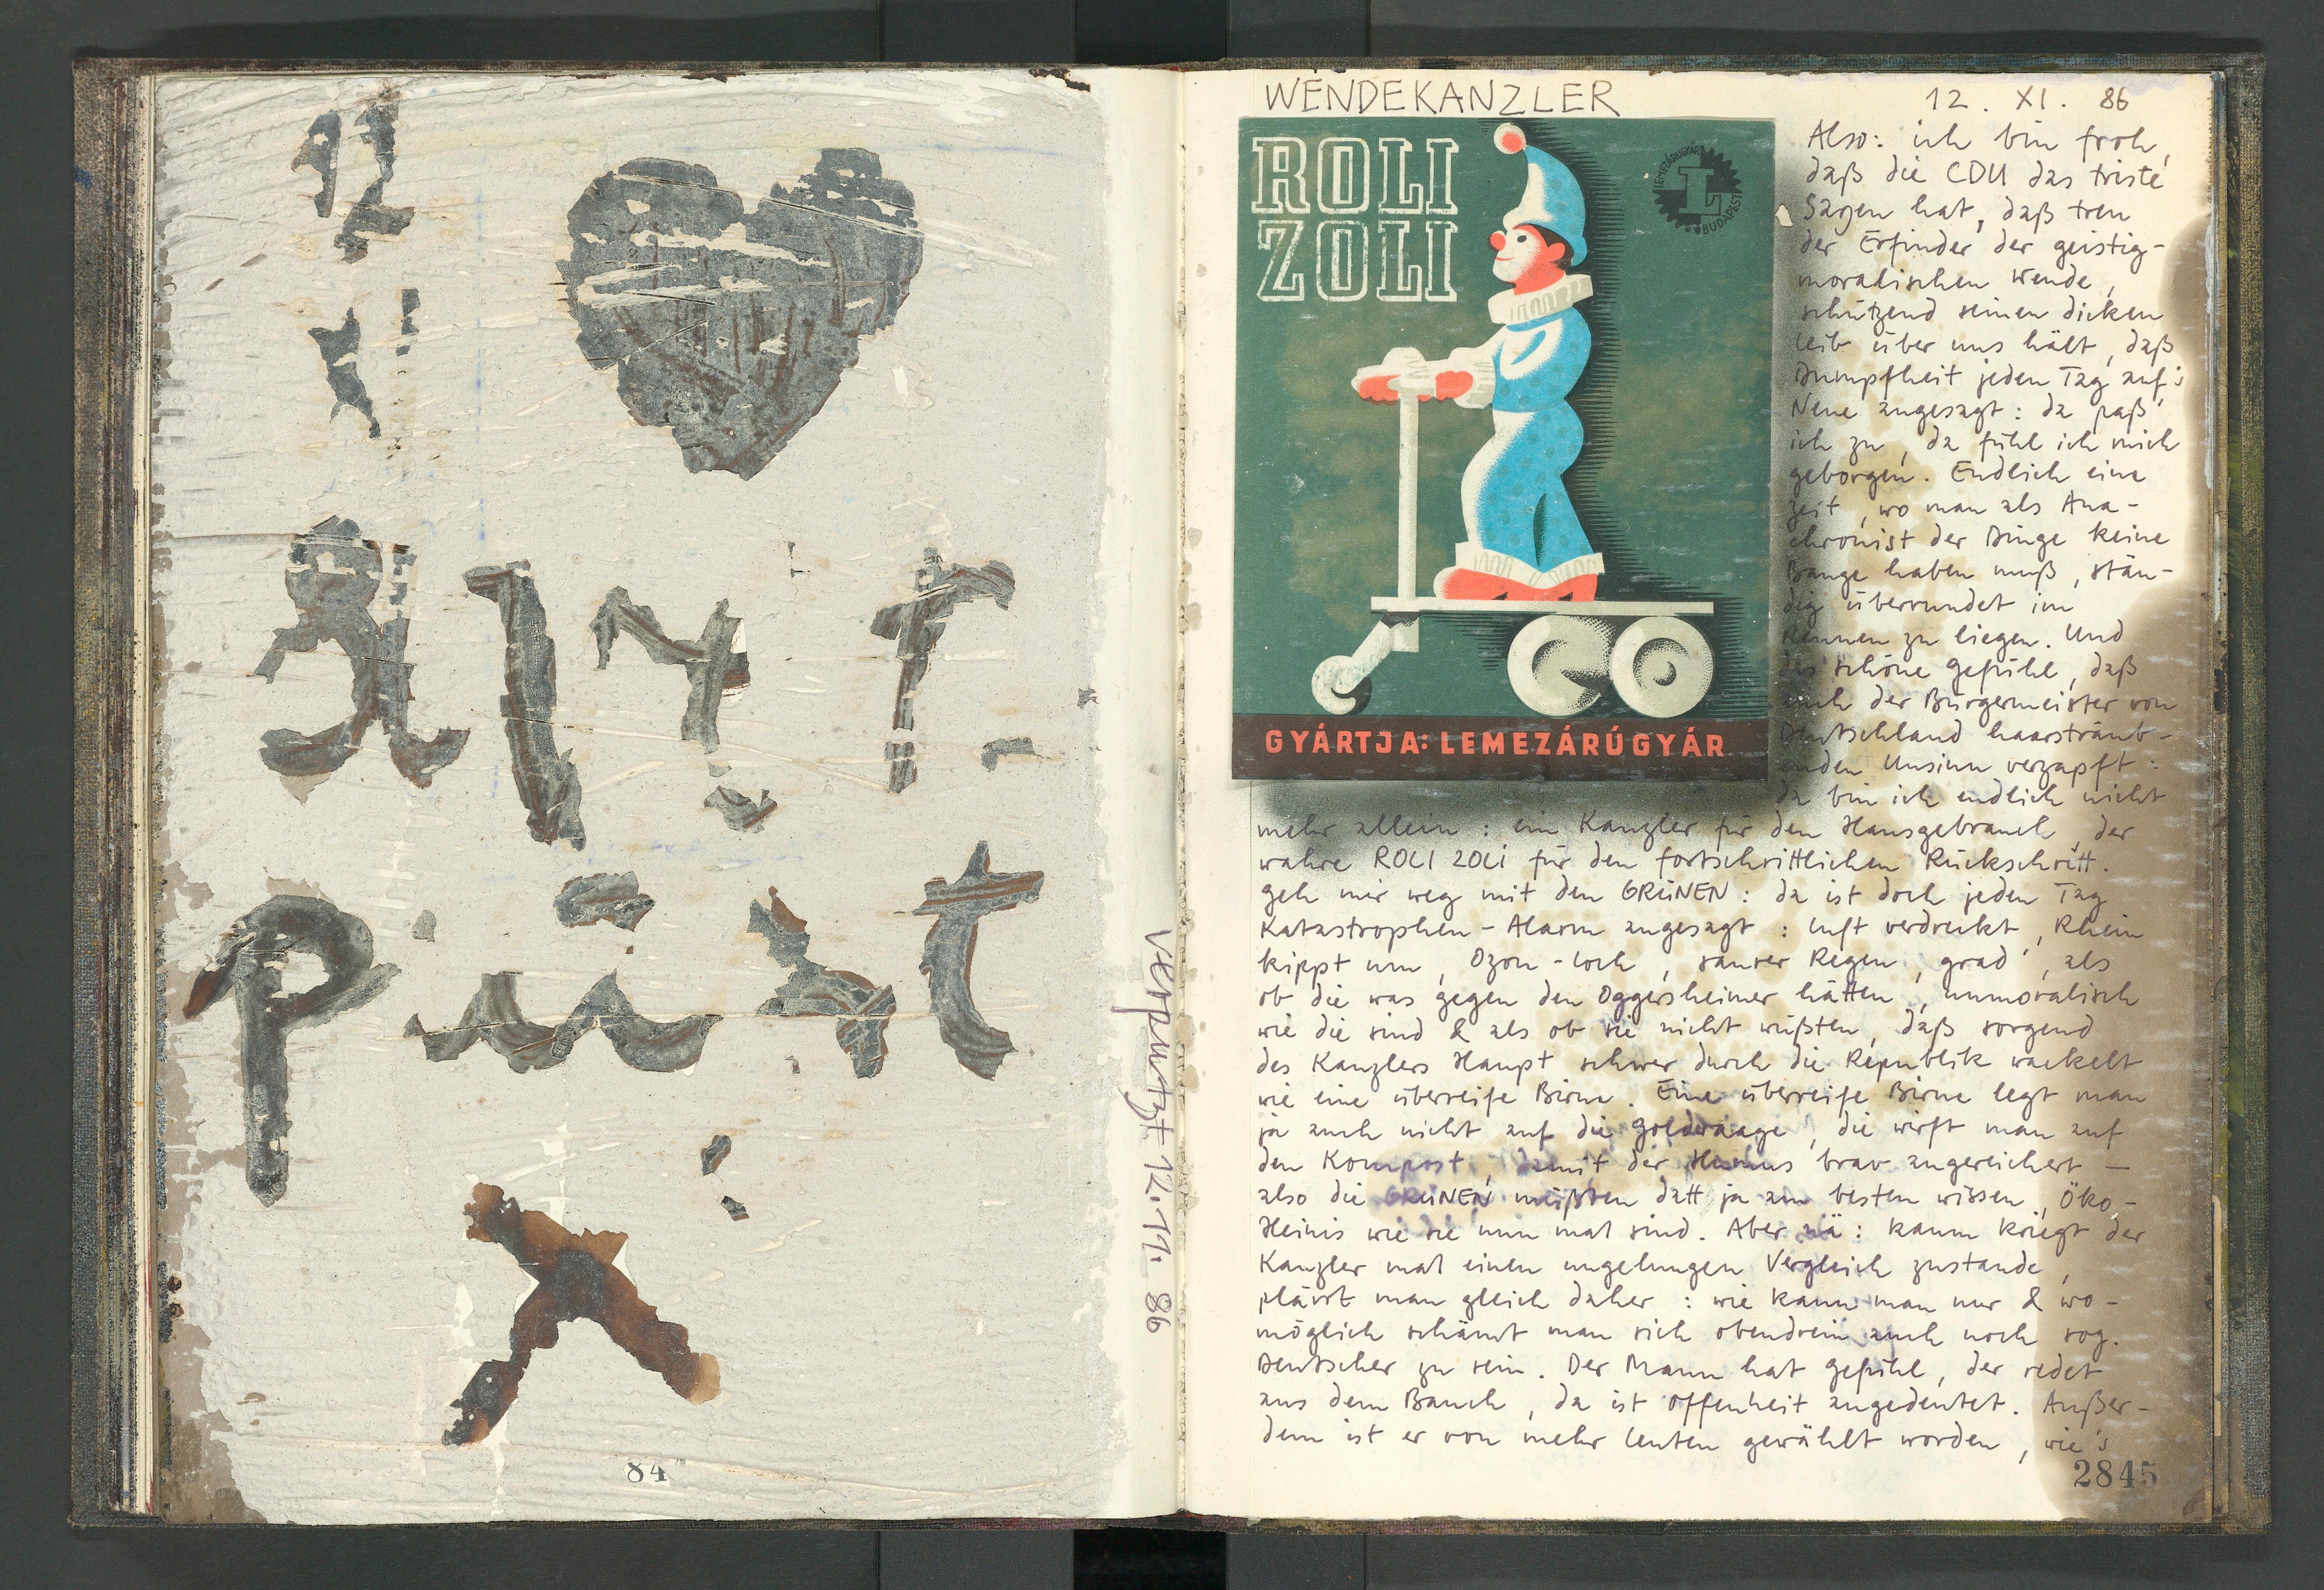 84
verputzt 12.11.86
WENDEKANZLER
12. XI. 86
ROLI
ZOLI
LEMEZÁRUGYÁR
L
BUDAPEST
GYÁRTJA: LEMEZÁRÚGYÁR
Also: ich bin froh,
daß die CDU das triste
Sagen hat, daß treu
der Erfinder der geistig-
moralischen Wende,
schützend seinen dicken
Leib über uns hält, daß
Dumpfheit jeden Tag auf's
Neue angesagt: da paß'
ich zu, da fühl ich mich
geborgen. Endlich eine
Zeit, wo man als Ana-
chronist der Dinge keine
Bange haben muß, stän-
dig überrundet im
Rennen zu liegen. Und
das schöne Gefühl, daß
auch der Bürgermeister von
Deutschland haarsträub-
enden Unsinn verzapft:
da bin ich endlich nicht
mehr allein: ein Kanzler für den Hausgebrauch, der
wahre ROLI ZOLI für den fortschrittlichen Rückschritt.
Geh mir weg mit den GRÜNEN: da ist doch jeden Tag
Katastrophen-Alarm angesagt: Luft verdreckt, Rhein
kippt um, Ozon-Loch, saurer Regen, grad', als
ob die was gegen den Oggersheimer hätten, unmoralisch
wie die sind & als ob sie nicht wüßten, daß sorgend
des Kanzlers Haupt schwer durch die Republik wackelt
wie eine überreife Birne. Eine überreife Birne legt man
ja auch nicht auf die Goldwaage, die wirft man auf
den Kompost, damit der Humus brav angereichert —
also die GRÜNEN müßten datt ja am besten wissen, Öko-
Heinis wie sie nun mal sind. Aber nä: kaum kriegt der
Kanzler mal einen ungelungen Vergleich zustande,
plärrt man gleich daher: wie kann man nur & wo-
möglich schämt man sich obendrein auch noch sog.
Deutscher zu sein. Der Mann hat Gefühl, der redet
aus dem Bauch, da ist Offenheit angedeutet. Außer-
dem ist er von mehr Leuten gewählt worden, wie's
2845